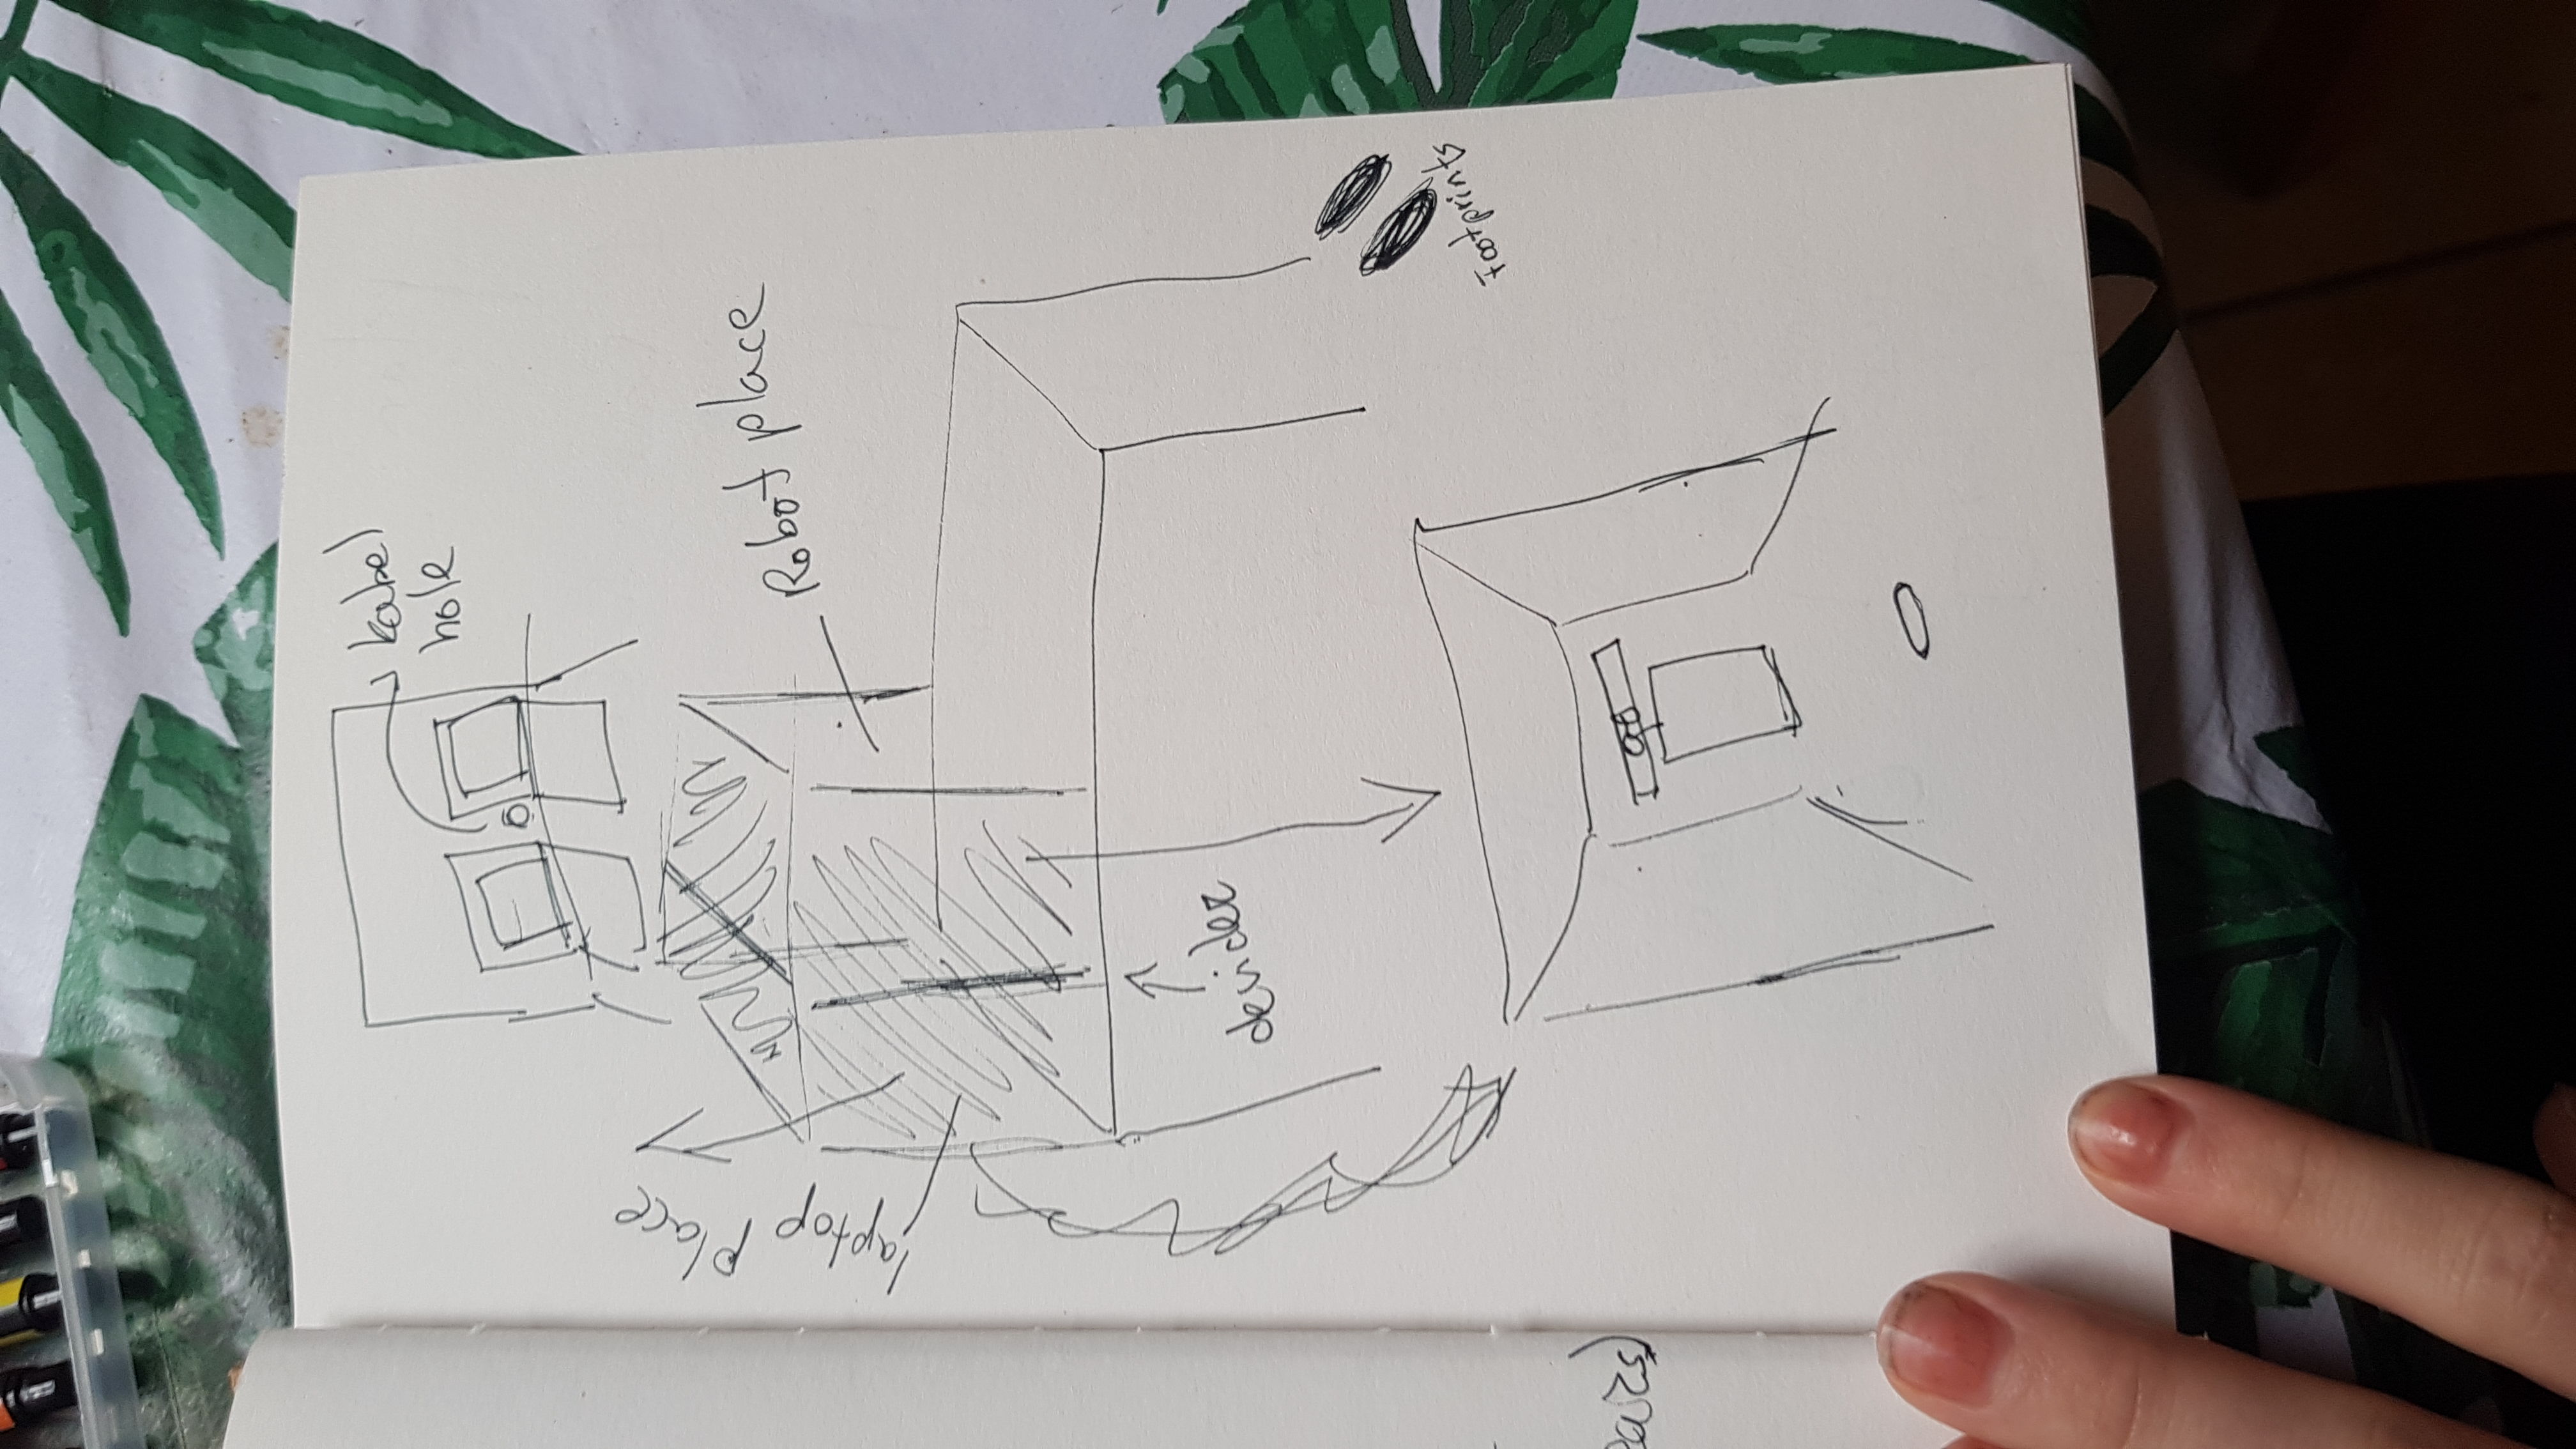 kabel
hole
laptop place
Robot place
devider
Footprints